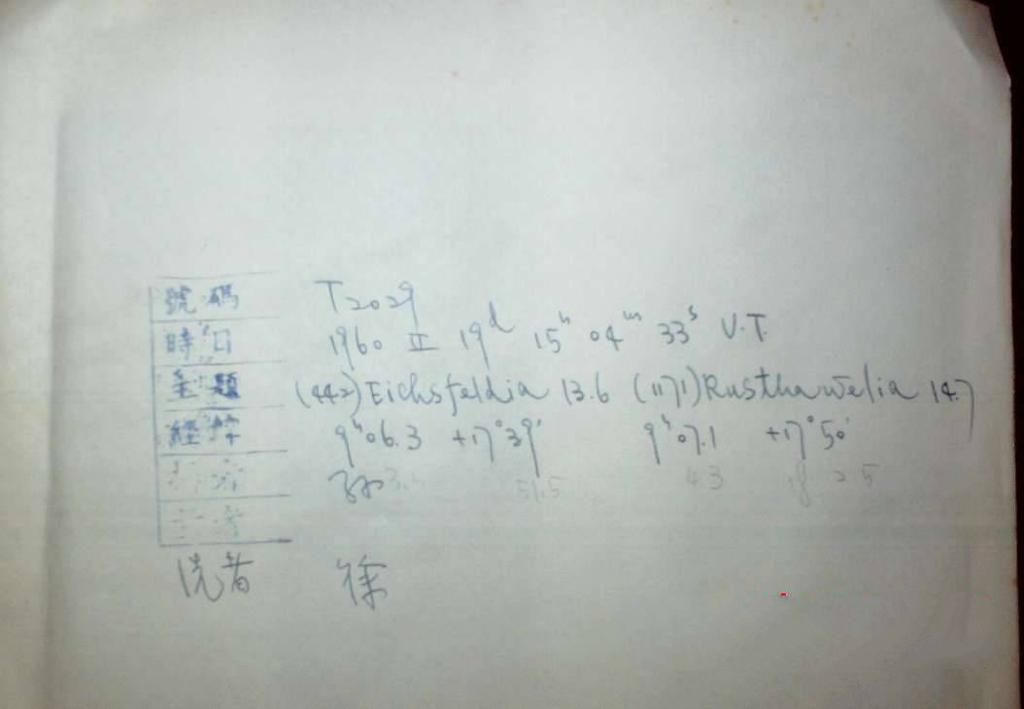 號碼 T2029
時日 1960 II 19d 15h 04m 33s U.T.
(442) Eichsfeldia 13.6 (1171) Rusthawelia 14.7
9h06.3 +17°39' 9h07.1 +17°50'
孙 51.5 43 18 25
洗者 徐